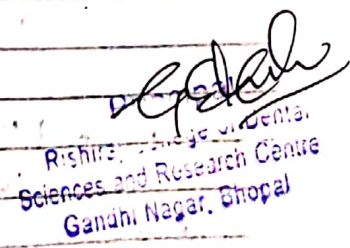 Rishiraj College of Dental
Sciences and Research Centre
Gandhi Nagar, Bhopal